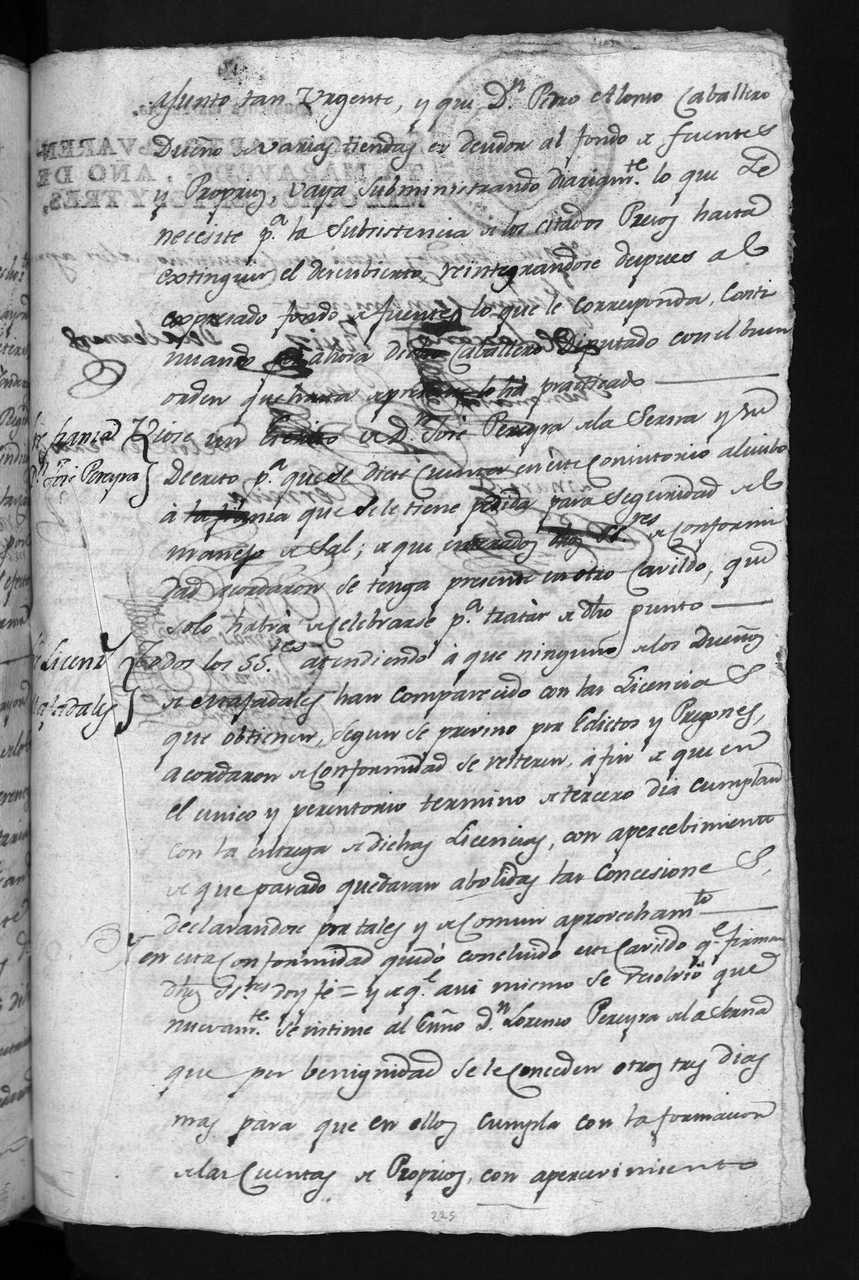 asunto tan Urgente, y que Dn Pedro Alonso Caballero
Dueño de varias tiendas es deudor al fondo de fuentes
y Proprios, vaya Subministrando diariamte lo que Se
necesite pa la Subsistencia de los citados Presos hasta
extinguir el descubierto, reintegrandose despues al
expresado fondo de fuentes lo que le corresponda, Conti
nuando por ahora dicho Caballero Diputado con el buen
orden que hasta de presente lo ha practicado
fianza
Dn José Pereyra
Viose un Escrito de Dn José Pereyra de la Serna y su
Decreto pa que se diese Cuenta en este Consistorio alusibo
à la fianza que se le tiene pedida para Seguridad del
manejo de Sal; de que enterados dhos SSres de Conformi
dad acordaron se tenga presente en otro Cavildo, que
solo habrà de Celebrarse pa tratar de dho punto
Licens
Majadales
Todos los SSres atendiendo à que ninguno de los Dueños
de Majadales han comparecido con las Licencias
que obtienen, segun se previno por Edictos y Pregones,
acordaron de Conformidad se reiteren, à fin de que en
el unico y perentorio termino de tercero dia cumplan
con la entrega de dichas Licencias, con apercebimiento
de que pasado quedaran abolidas las Concesiones,
declarandose por tales y de Comun aprovechamto
Y en esta Conformidad quedó concluido este Cavildo qe firman
dhos SSres doy fé = y de qe asi mismo se resolvió que
nuevamte se intime al Essno Dn Lorenzo Pereyra de la Serna
que por benignidad se le conceden otros tres dias
mas para que en ellos cumpla con la formacion
de las Cuentas de Proprios, con apercivimiento
225